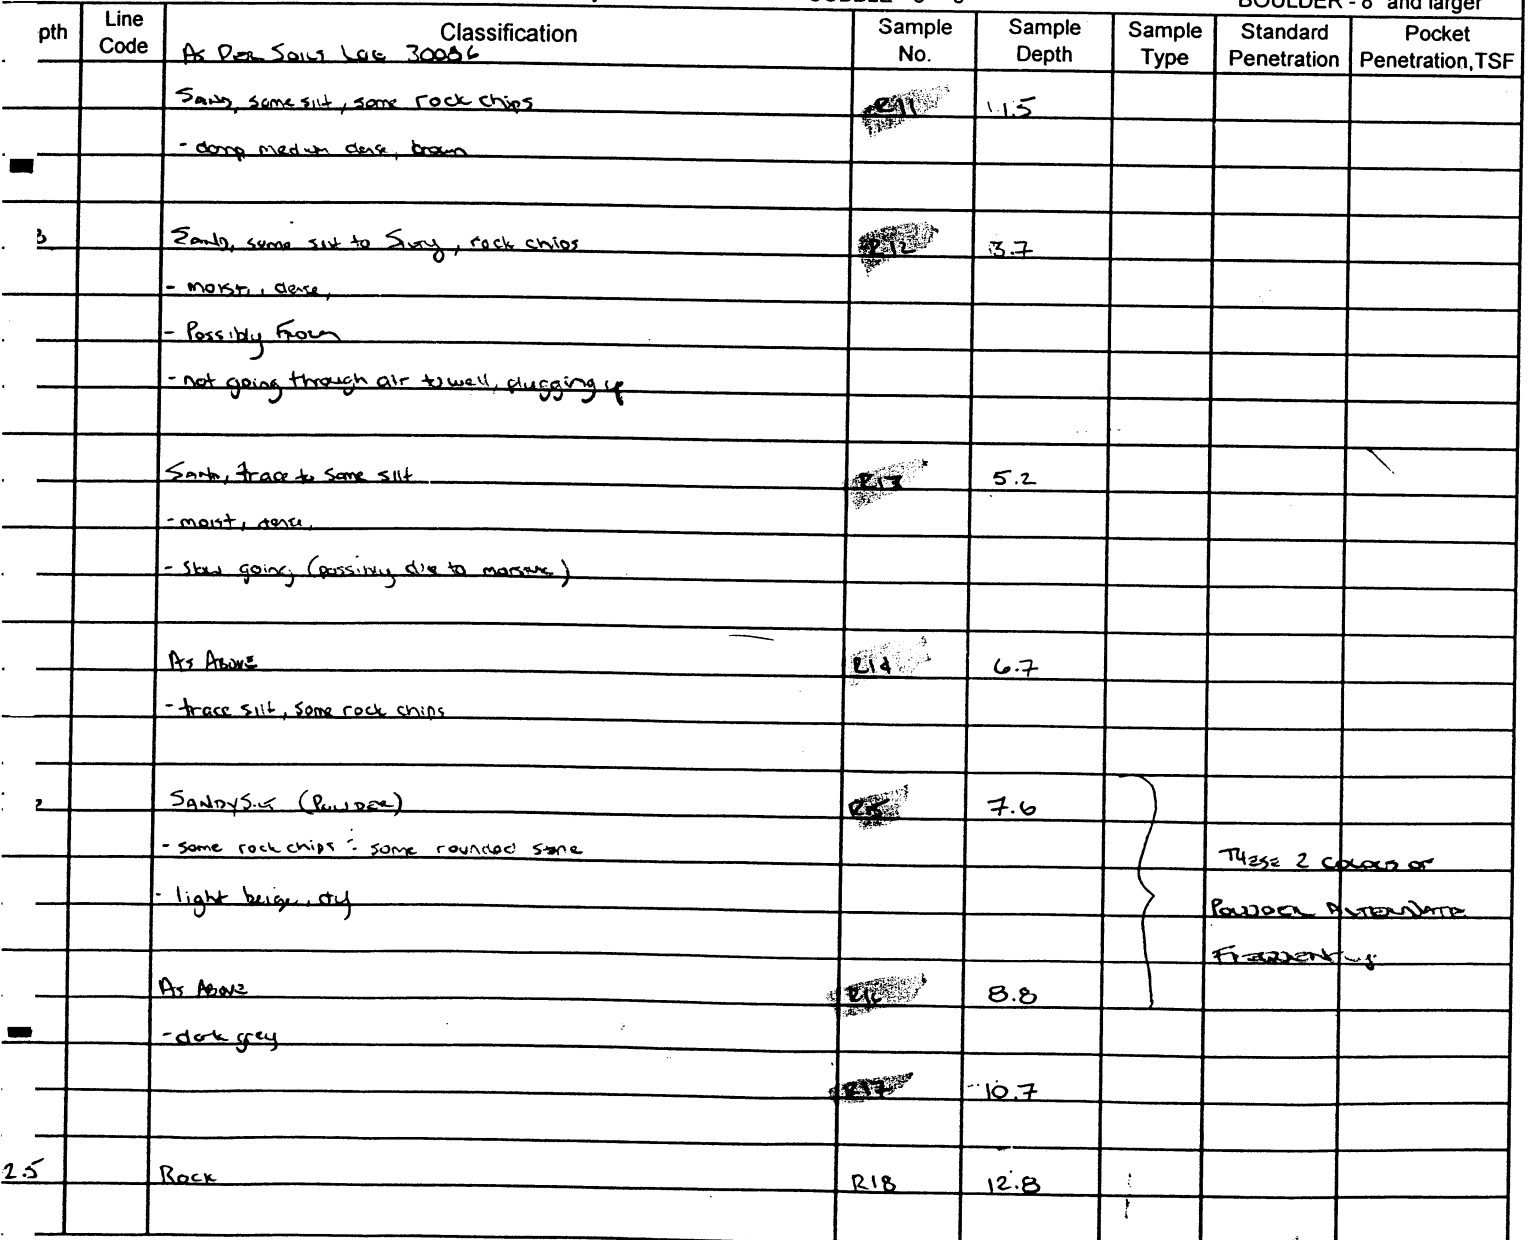 BOULDER - 8" and larger
pth Line Code Classification Sample No. Sample Depth Sample Type Standard Penetration Pocket Penetration, TSF
As Per Soils Log 30086
Sand, some silt, some rock chips R11 1.5
- damp medium dense, brown
3 Sand, some silt to Silty, rock chips R12 3.7
- moist, dense,
- Possibly Frozen
- not going through air to well, plugging up
Sand, trace to some silt R13 5.2
- moist, dense,
- Slow going (possibly due to moisture)
As Above R14 6.7
- trace silt, some rock chips
2 SANDY Silt (POWDER) R15 7.6
- some rock chips - some rounded stone THESE 2 COLOURS OF
- light beige, dry POWDER ALTERNATE
FREQUENTLY
As Above R16 8.8
- dark grey
R17 10.7
2.5 Rock R18 12.8